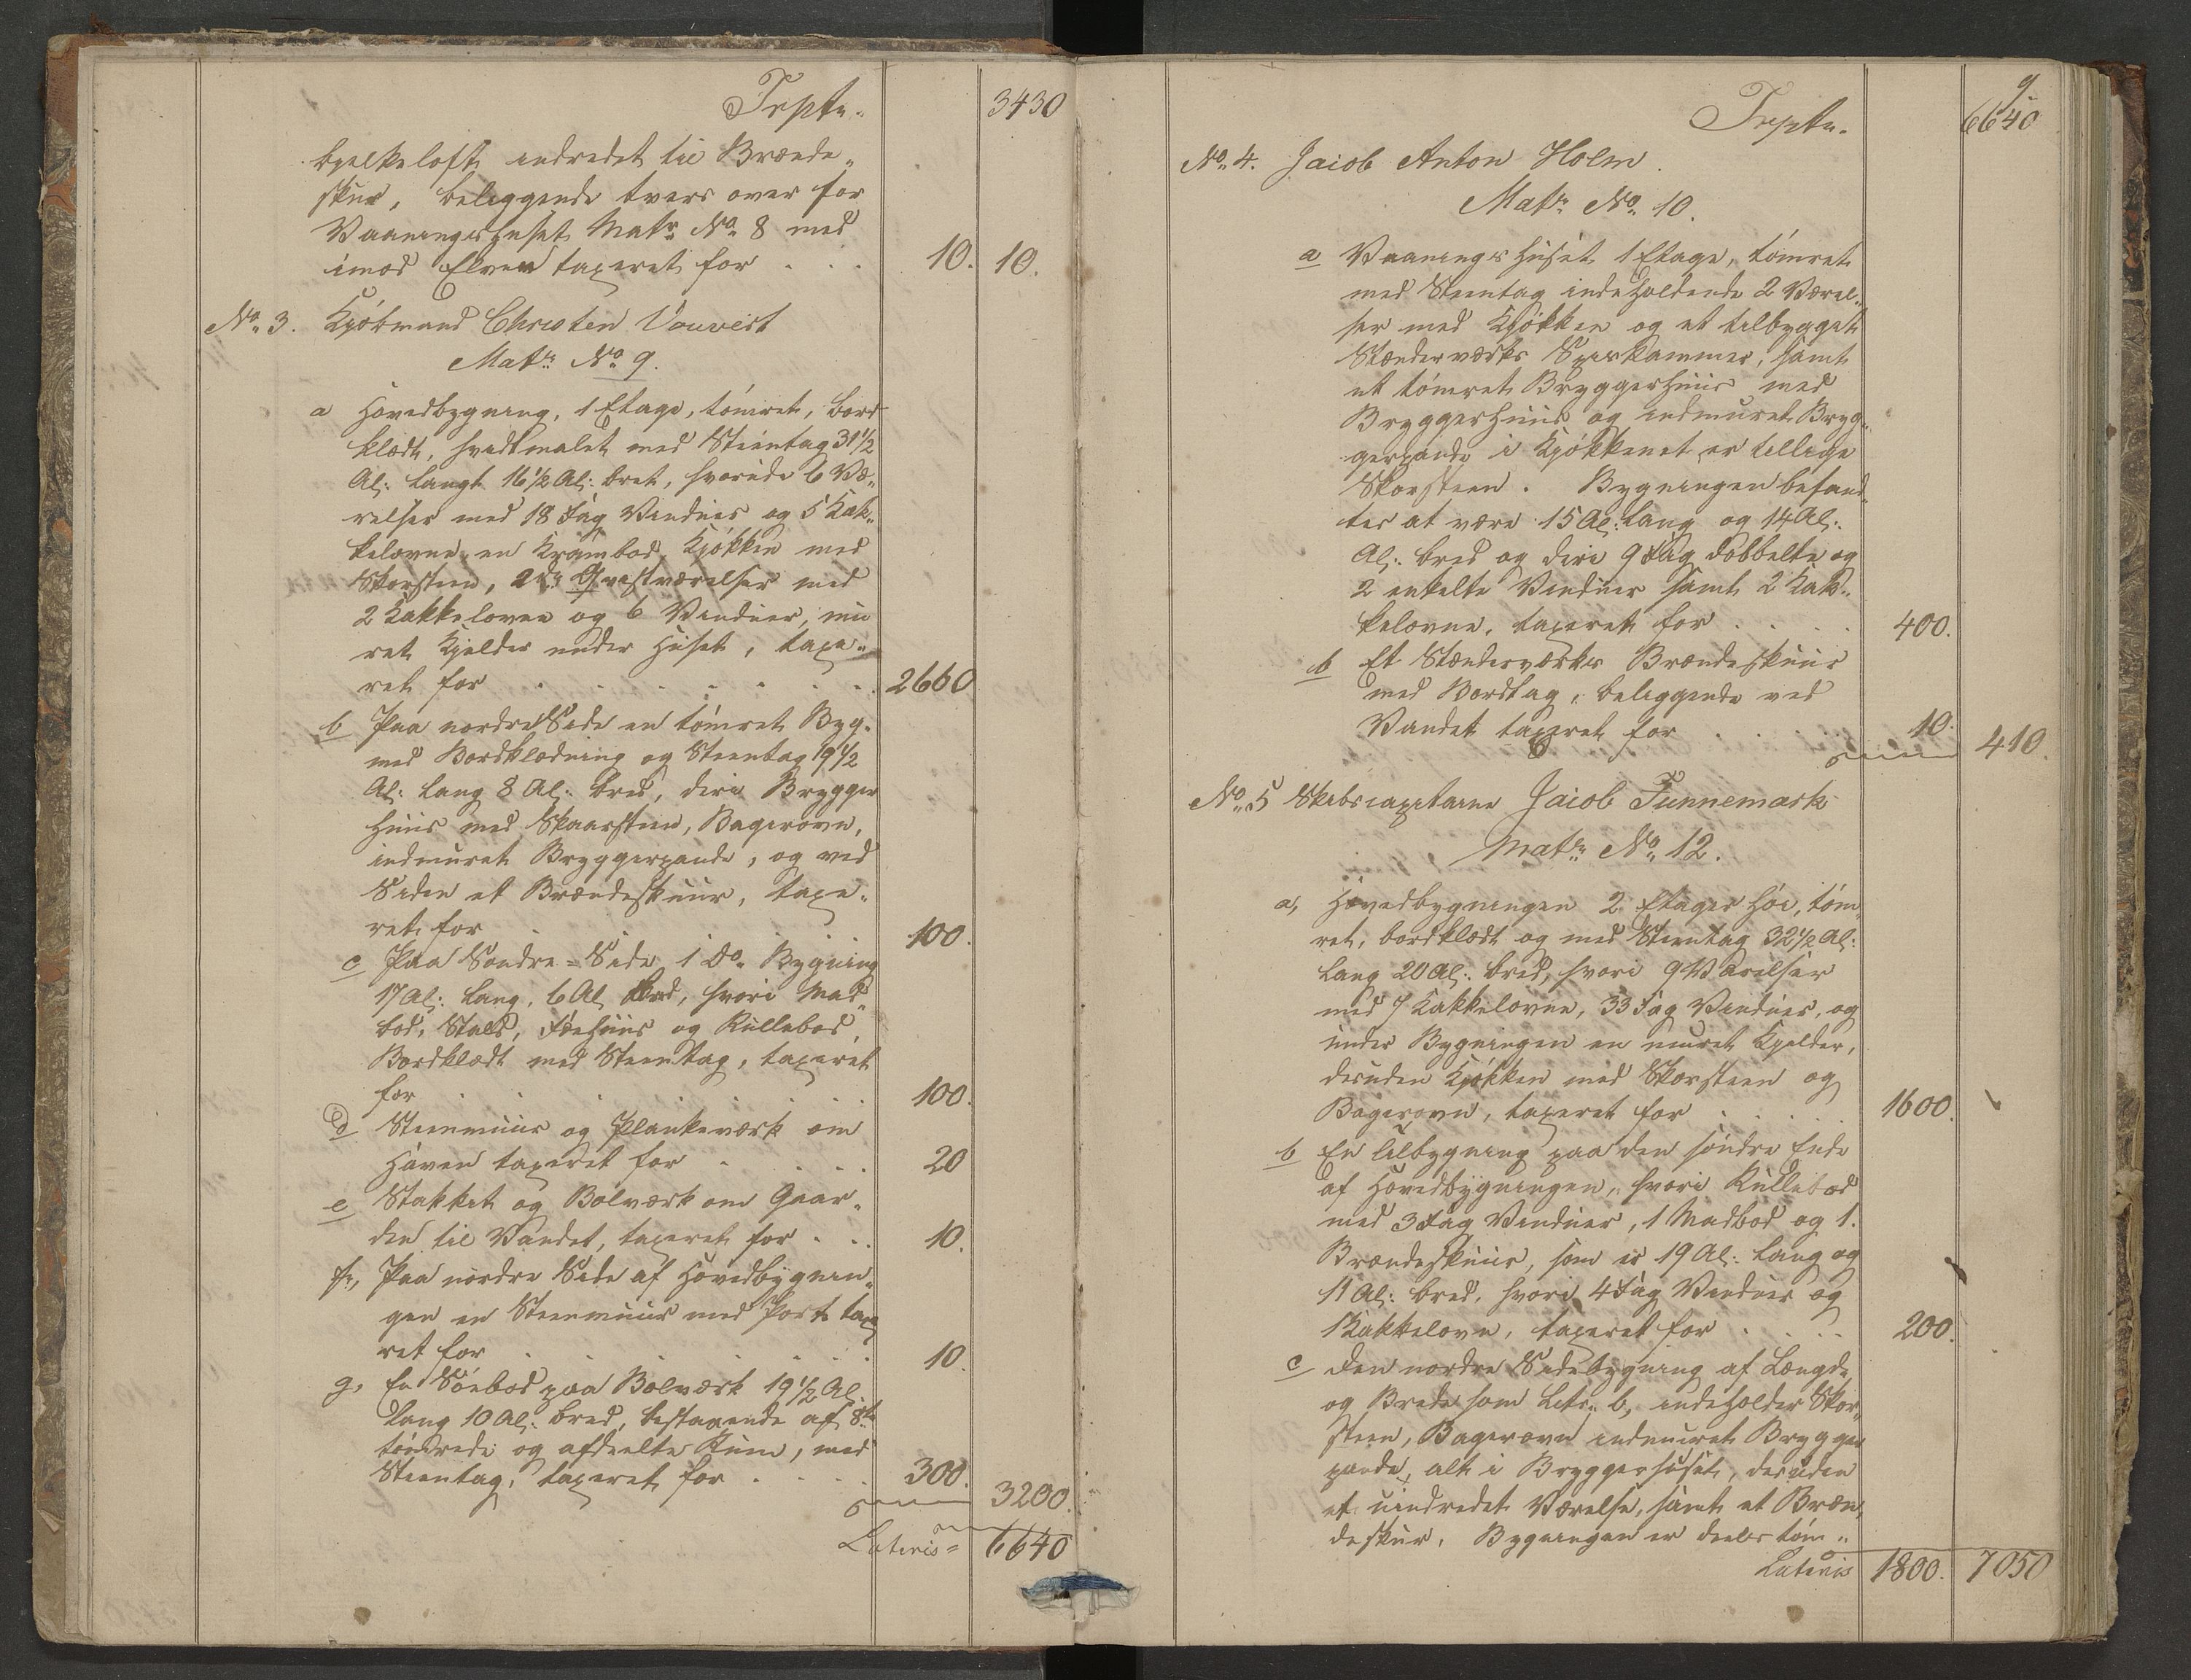 Trpt. 3430
bjelkeloft indredet til Brænde„
skur, beliggende tvers over for
Vaaningshuset Matr No 8 ned
imod Elven taxeret for . . . 10. 10.
No 3. Kjöbmand Christen Vauvert
Matr No 9.
a Hovedbygning, 1 Etage, tömret, bord
klædt, hvidtmalet med Steentag 31½
Al: langt 16½ Al: bret, hvoride 6 Væ„
relser med 18 Fag Vinduer og 5 Kak„
kelovne, en Krambod, Kjökken med
Skorsteen, 2de Qvistværelser med
2 Kakkelovne og 6 Vinduer, mu
ret Kjelder under Huset, taxe„
ret for . . . . . . . 2660
b Paa nordre Side en tömret Byg.
med Bordklædning og Steentag 19½
Al: lang 8 Al: bred, deri Brygger
huus med Skaarsteen, Bagerovn,
indmuret Bryggerpande, og ved
Siden et Brændeskuur, taxe„
ret for . . . . . 100.
c Paa Söndre = Side 1 Do Bygning
17 Al: lang, 6 Al bred, hvori Mad„
bod, Stald, Fæehuus og Rullebod,
Bordklædt med Steentag, taxeret
for . . . . . . 100.
d Steenmuur og Plankeværk om
Haven taxeret for . . . . 20
e Stakket og Bolværk om Gaar„
den til Vandet, taxeret for . . . 10.
f, Paa nordre Side af Hovedbygnin„
gen en Steenmuur med Port taxe
ret for . . . . . . 10.
g, En Söebod paa Bolværk 19½ Al.
lang 10 Al: bred, bestaaende af 8te
töndrede og afdeelte Rum, med
Steentag, taxeret for . . . . 300.
3200.
Lateris = 6640
9
Trpt. 6640
No 4. Jacob Anton Holm
Matr No 10.
a Vaaningshuset 1 Etage, tömret
med Steentag indeholdende 2 Værel„
ser med Kjökken og et tilbygget
Stænderværks Spiiskammer, samt
et tömret Bryggerhuus med
Bryggerhuus og indmuret Bryg„
gerpande i Kjökkenet er tillige
Skorsteen. Bygningen befand„
tes at være 15 Al: lang og 14 Al:
Al: bred og deri 9 Fag dobbelte og
2 enkelte Vinduer samt 2 Kak„
kelovne, taxeret for . . . . 400.
b Et Stænderværks Brændeskuur
med Bordtag, beliggende ved
Vandet taxeret for . . . . 10.
410.
No 5 Skibscapitaine Jacob Funnemark
Matr No 12.
a, Hovedbygningen 2 Etager höi, töm„
ret, bordklædt og med Steentag 32½ Al:
lang 20 Al: bred, hvori 9 Værelser
med 7 Kakkelovne, 33 Fag Vinduer, og
under Bygningen en muret Kjelder,
desuden Kjökken med Skorsteen og
Bagerovn, taxeret for . . . . 1600.
b En tilbygning paa den söndre Ende
af Hovedbygningen, hvori Rullebod
med 3 Fag Vinduer, 1 Madbod og 1.
Brændeskuur, som er 19 Al: lang og
11 Al: bred, hvori 4 Fag Vinduer og
1 Kakkelovn, taxeret for . . . . 200.
c Den nordre Sidebygning af Længde
og Brede som Litr. b, indeholder Skor„
steen, Bagerovn indmuret Brygger
pande, alt i Bryggerhuset, desuden
et uindredet Værelse, samt et Bræn„
deskur. Bygningen er deels töm„
Lateris 1800. 7050